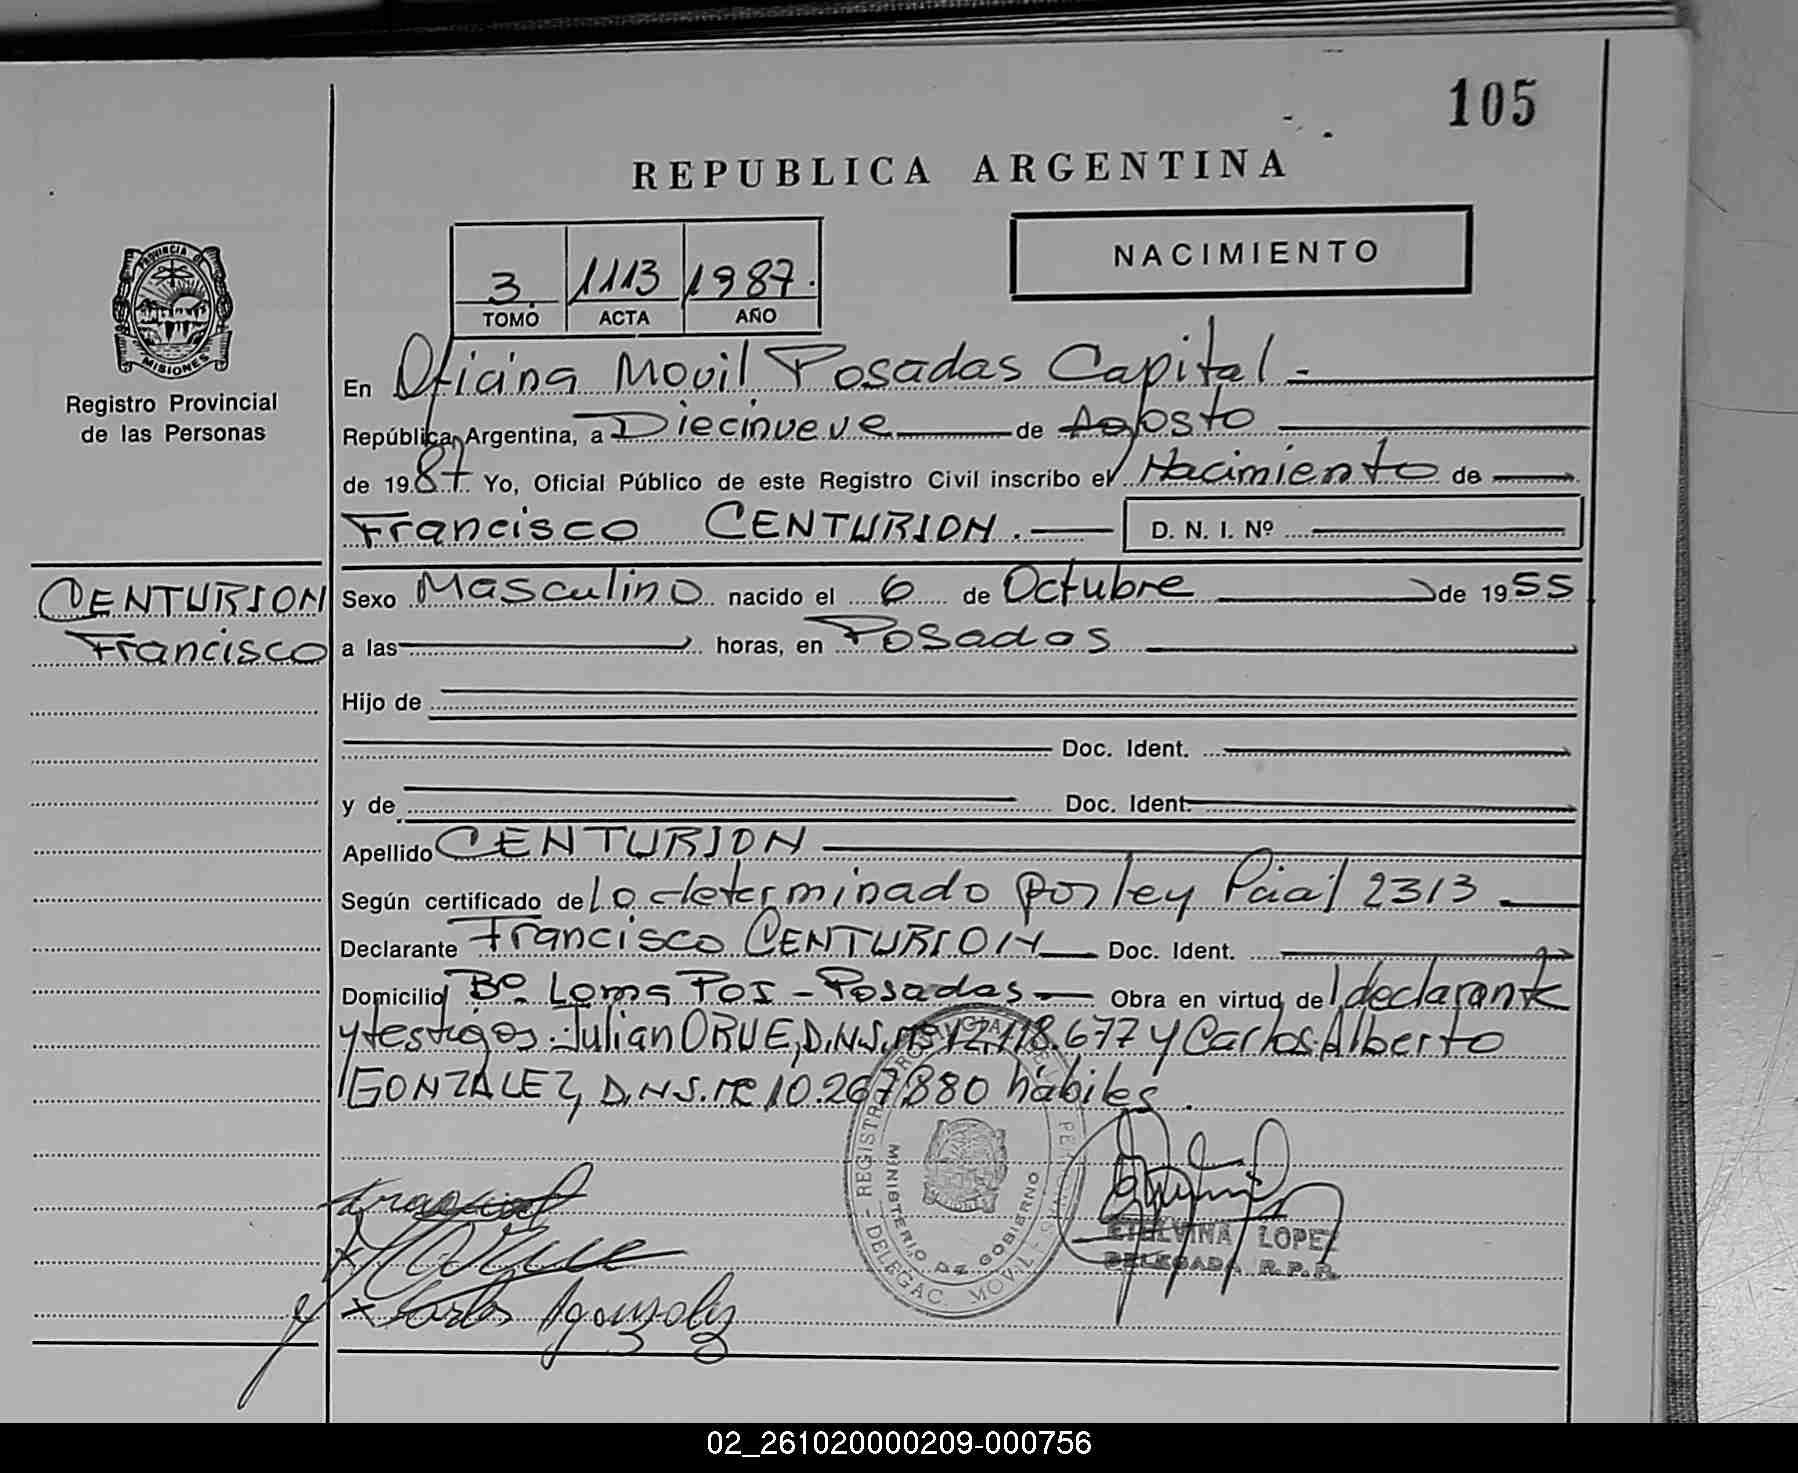 105
REPUBLICA ARGENTINA
3. 1113 1987.
TOMO ACTA AÑO
NACIMIENTO
PROVINCIA DE
MISIONES
Registro Provincial
de las Personas
En Oficina Movil Posadas Capital -
República Argentina, a Diecinueve de Agosto
de 1987 Yo, Oficial Público de este Registro Civil inscribo el Nacimiento de
Francisco CENTURION. D. N. I. Nº
CENTURION
Francisco
Sexo Masculino nacido el 6 de Octubre de 1955
a las horas, en Posadas
Hijo de
Doc. Ident.
y de Doc. Ident.
Apellido CENTURION
Según certificado de lo determinado por ley Pcial 2313
Declarante Francisco CENTURION Doc. Ident.
Domicilio Bº. Loma Poi - Posadas Obra en virtud de l declarante
y testigos: Julian ORUE, D.N.I. nº 12.118.677 y Carlos Alberto
GONZALEZ, D.N.I. nº 10.267.880 hábiles.
MINISTERIO DE GOBIERNO
DELEGAC. MOVIL
ETELVINA LOPEZ
DELEGADA R.P.P.
Carlos A gonzalez
02_261020000209-000756